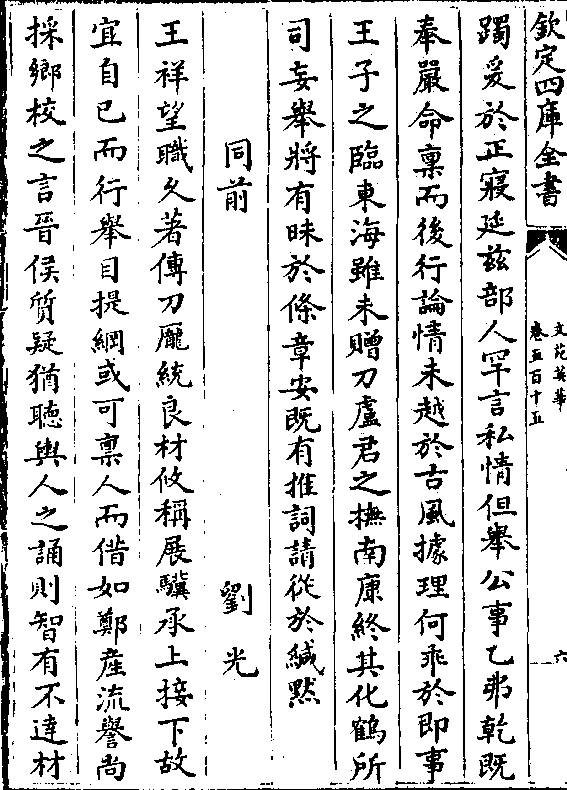 欽定四庫全書
文苑英華
卷五百十五
六
躅爰於正寢延兹部人罕言私情但舉公事乙弗乾既
奉嚴命稟而後行論情未越於古風據理何乖於即事
王子之臨東海雖未贈刀盧君之撫南康終其化鶴所
司妄舉將有昧於條章安既有推詞請從於緘黙
同前 劉光
王祥望職久著傳刀龎統良材攸稱展驥承上接下故
宜自已而行舉目提綱或可稟人而借如鄭産流譽尚
採鄉校之言晉侯質疑猶聽輿人之誦則智有不逹材